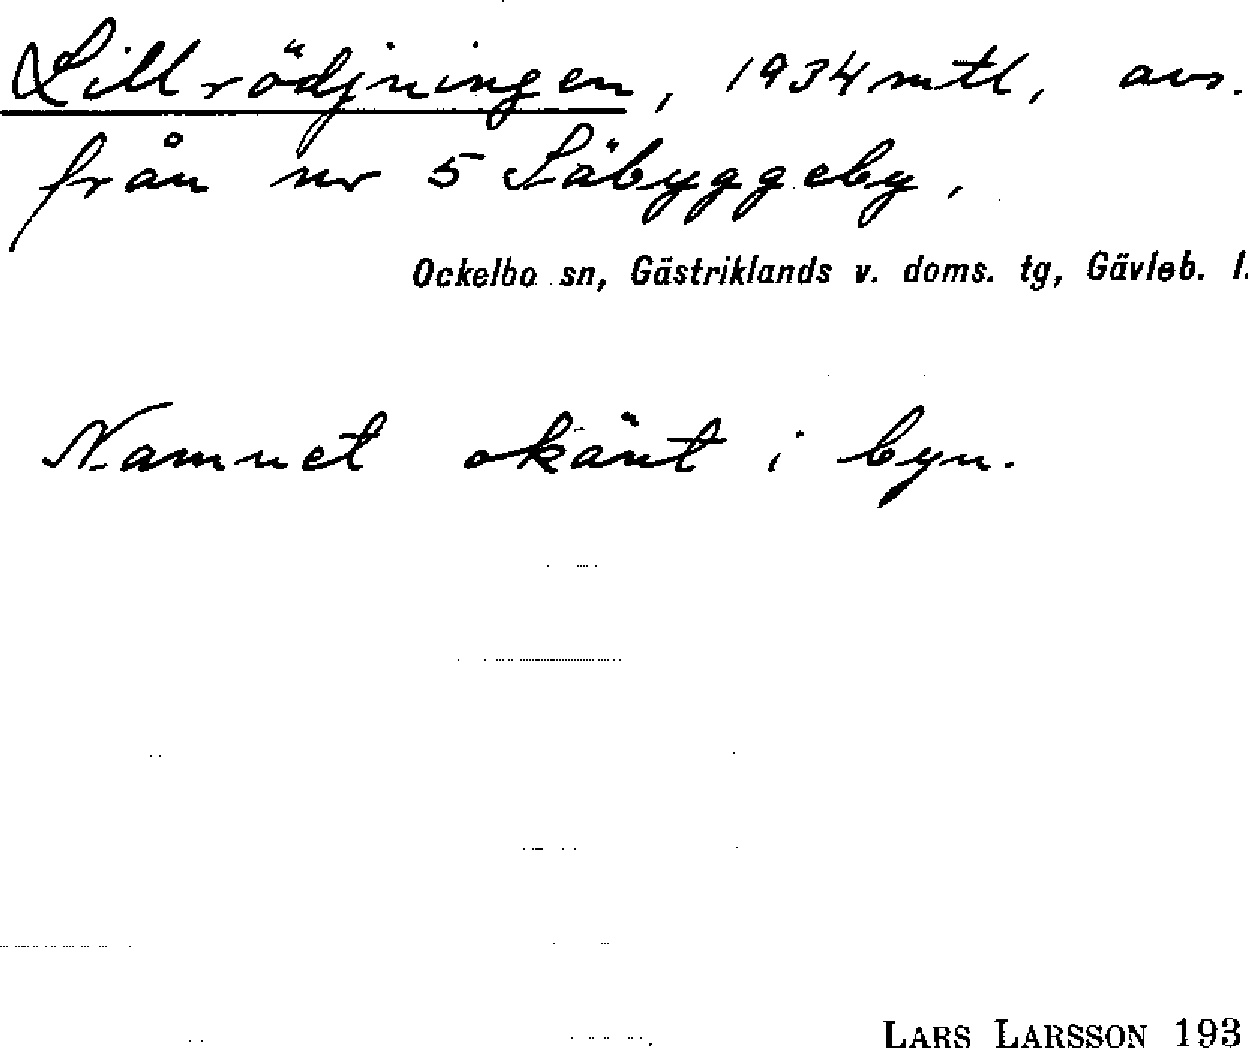 Lillrödjningen, 1934 mtl, avs.
från nr 5 Säbyggeby.
Ockelbo sn, Gästriklands v. doms. tg, Gävleb. l.
Namnet okänt i byn.
LARS LARSSON 193